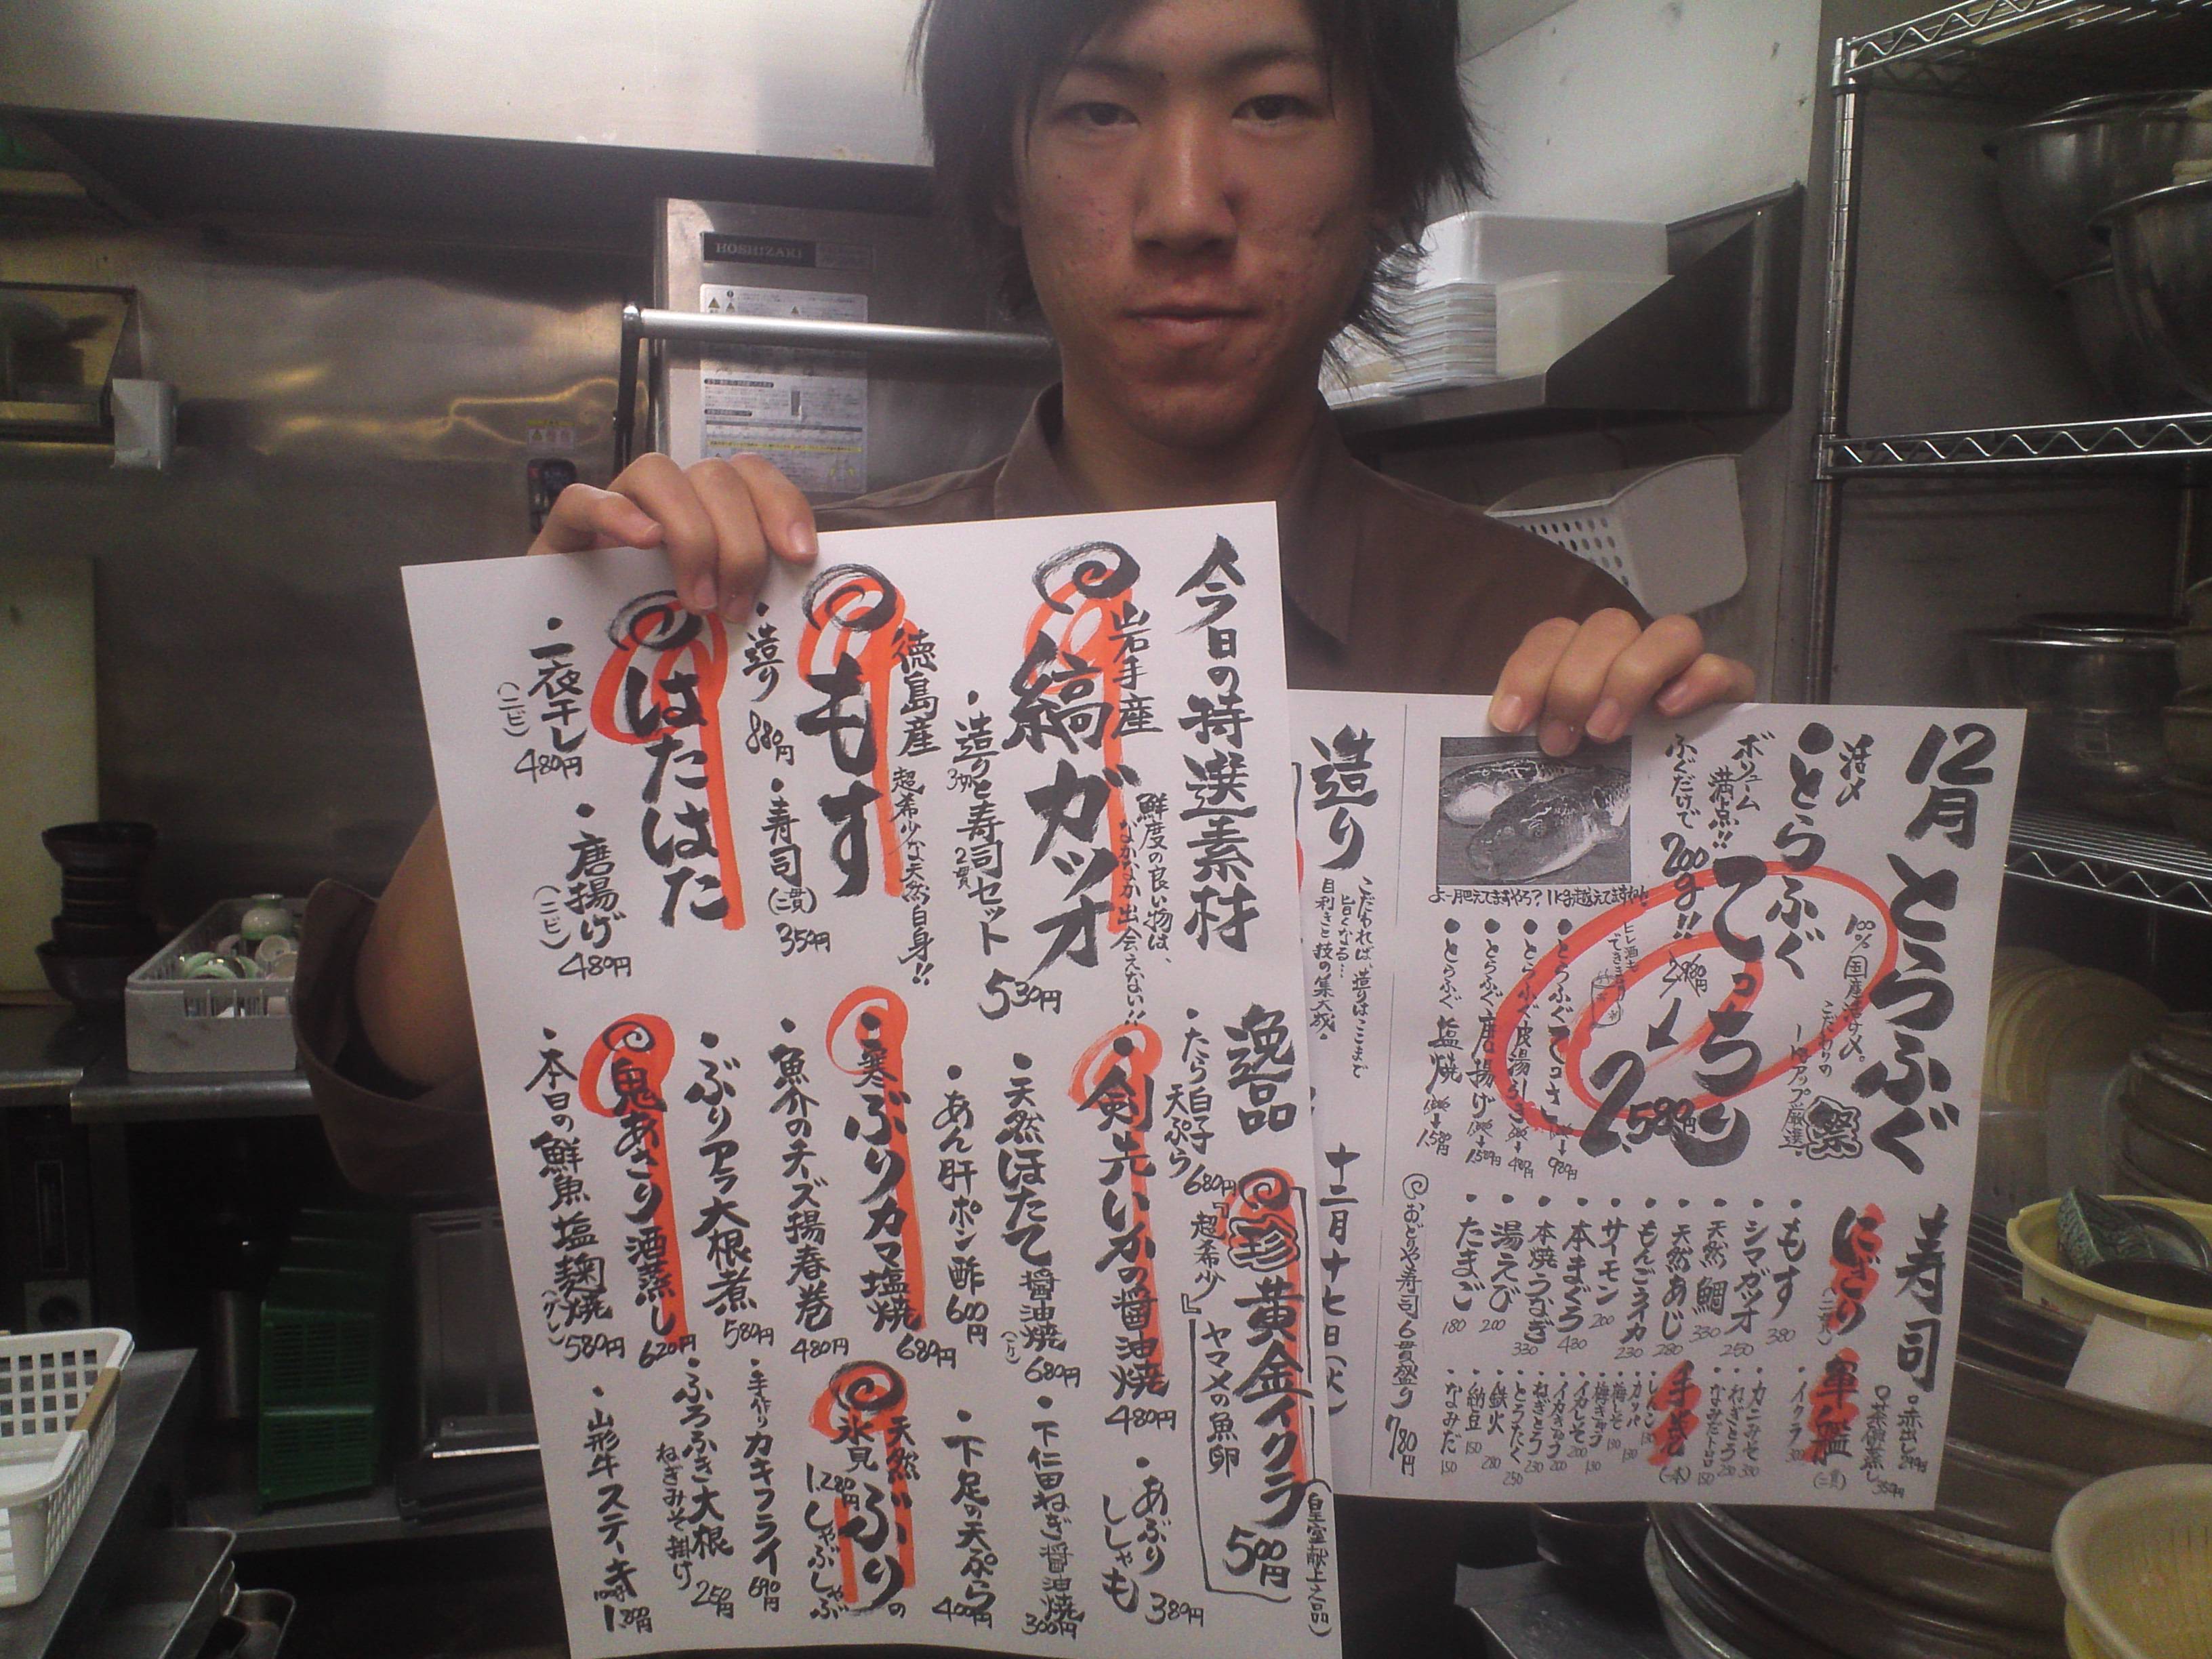 HOSHIZAKI
今日の特選素材
岩手産
縞ガツオ
鮮度の良い物は、
なかなか出会えない!!
・造り3切と寿司2貫セット 530円
徳島産
もす
超希少な天然白身!!
・造り 880円
・寿司(二貫) 350円
はたはた
・一夜干し(二ビ) 480円
・唐揚げ(二ビ) 480円
逸品
珍 黄金イクラ
(皇室献上之品)
『超希少』
ヤマメの魚卵
500円
・たら白子天ぷら 680円
・剣先いかの醤油焼 480円
・あぶりししゃも 380円
・天然ほたて醤油焼 680円
・下仁田ねぎ醤油焼 300円
・あん肝ポン酢 600円
・下足の天ぷら 400円
・寒ぶりカマ塩焼 680円
天然
氷見ぶりの
しゃぶしゃぶ
1,280円
・魚介のチーズ揚春巻 480円
・手作りカキフライ 690円
・ぶりアラ大根煮 580円
・ふろふき大根
ねぎみそ掛け
250円
鬼あさり酒蒸し 620円
・本日の鮮魚塩麹焼 580円
・山形牛ステーキ
12月とらふぐ
祭
100%国産活け〆。
こだわりの
1kgアップ厳選。
活〆
・とらふぐ
てっちり
2,980円
2,580円
ボリューム
満点!!
ふぐだけで
200g!!
ヒレ酒も
できます
よー肥えてますやろ?1kg越えてますねん!
・とらふぐてっさ 980円
・とらふぐ皮湯引き 480円
・とらふぐ唐揚げ 1,580円
・とらふぐ塩焼 1,580円
寿司
赤出し
茶碗蒸し 350円
にぎり(二貫)
・もす 380
・シマガツオ 250
・天然鯛 330
・天然あじ 280
・もんごうイカ 230
・サーモン 200
・本まぐろ 430
・本焼うなぎ 330
・湯えび 200
・たまご 180
軍艦(二貫)
・イクラ
・カニみそ
・ねぎとろ
・なみだトロ
手巻(一本)
・しんこ
・カッパ
・梅しそ
・梅きゅう
・イカしそ
・イカきゅう
・ねぎとろ
・とろたく 250
・鉄火
・納豆 150
・なみだ 150
おどりや寿司6貫盛り 780円
造り
こだわれば、造りはここまで
旨くなる…
目利きと技の集大成。
十二月十七日(火)